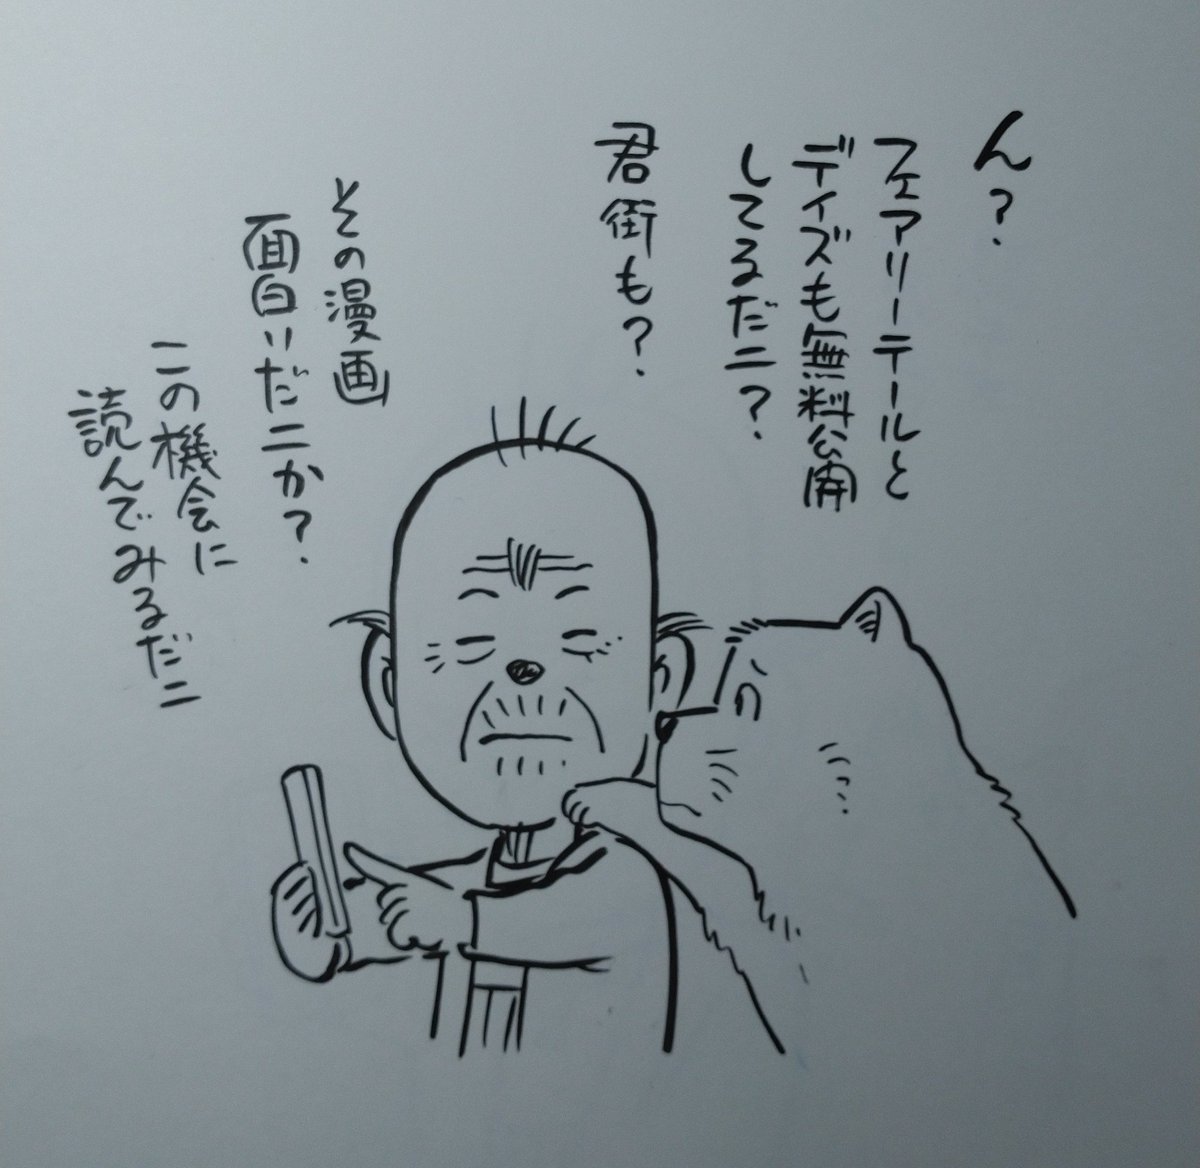 ん?
フェアリーテールと
デイズも無料公開
してるだニ?
君街も?
その漫画
面白いだニか?
この機会に
読んでみるだニ